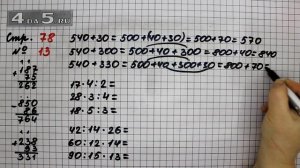 4 DA 5.RU
Стр. 78
№ 13
540+30=500+(40+30)=500+70=570
540+300=500+40+300=800+40=840
540+330=500+40+300+30=800+70=
+187
75
262
-850
86
764
+238
93
331
17·4:2=
28·3:4=
18·5:3=
42:14·26=
60:12·14=
90:15·13=